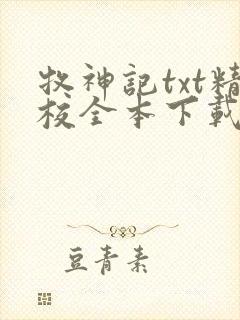 牧神記txt精
校全本下載
豆青素